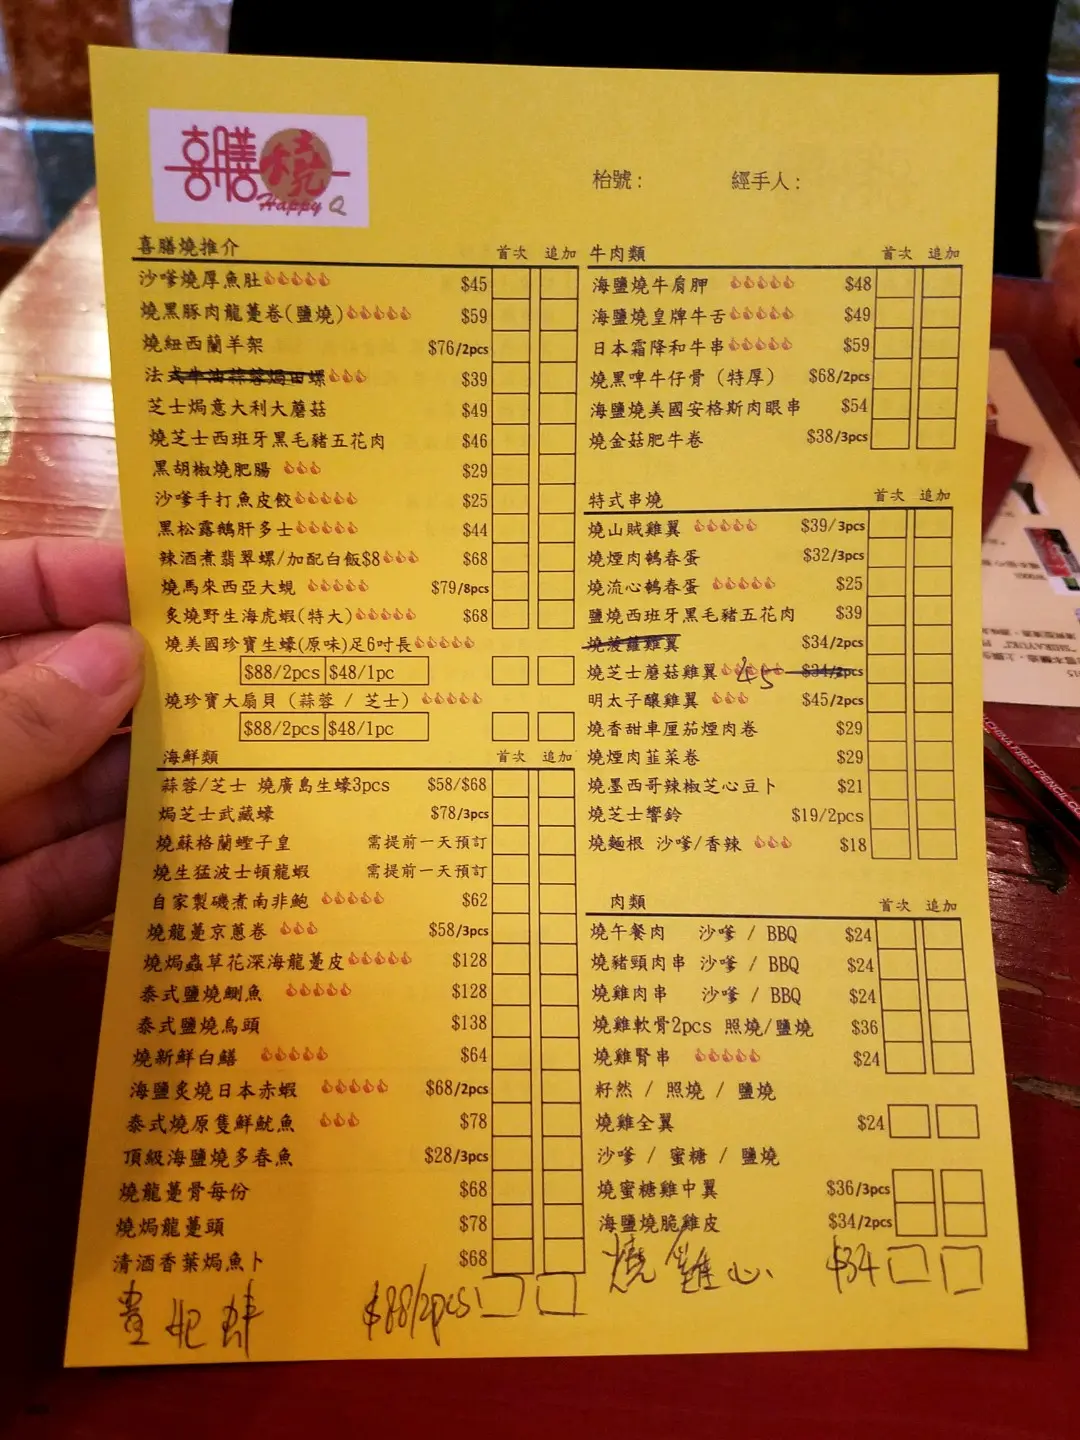 喜膳燒
Happy Q
枱號：
經手人：
喜膳燒推介 首次 追加
沙嗲燒厚魚肚 $45
燒黑豚肉龍躉卷(鹽燒) $59
燒紐西蘭羊架 $76/2pcs
法式牛油蒜蓉焗田螺 $39
芝士焗意大利大蘑菇 $49
燒芝士西班牙黑毛豬五花肉 $46
黑胡椒燒肥腸 $29
沙嗲手打魚皮餃 $25
黑松露鵝肝多士 $44
辣酒煮翡翠螺/加配白飯$8 $68
燒馬來西亞大蜆 $79/8pcs
炙燒野生海虎蝦(特大) $68
燒美國珍寶生蠔(原味)足6吋長
$88/2pcs $48/1pc
燒珍寶大扇貝 (蒜蓉 / 芝士)
$88/2pcs $48/1pc
海鮮類 首次 追加
蒜蓉/芝士 燒廣島生蠔3pcs $58/$68
焗芝士武藏蠔 $78/3pcs
燒蘇格蘭蟶子皇 需提前一天預訂
燒生猛波士頓龍蝦 需提前一天預訂
自家製磯煮南非鮑 $62
燒龍躉京蔥卷 $58/3pcs
燒焗蟲草花深海龍躉皮 $128
泰式鹽燒鯏魚 $128
泰式鹽燒烏頭 $138
燒新鮮白鱔 $64
海鹽炙燒日本赤蝦 $68/2pcs
泰式燒原隻鮮魷魚 $78
頂級海鹽燒多春魚 $28/3pcs
燒龍躉骨每份 $68
燒焗龍躉頭 $78
清酒香葉焗魚卜 $68
$88/2pcs
牛肉類 首次 追加
海鹽燒牛肩胛 $48
海鹽燒皇牌牛舌 $49
日本霜降和牛串 $59
燒黑啤牛仔骨 (特厚) $68/2pcs
海鹽燒美國安格斯肉眼串 $54
燒金菇肥牛卷 $38/3pcs
特式串燒 首次 追加
燒山賊雞翼 $39/3pcs
燒煙肉鵪春蛋 $32/3pcs
燒流心鵪春蛋 $25
鹽燒西班牙黑毛豬五花肉 $39
燒菠蘿雞翼 $34/2pcs
燒芝士蘑菇雞翼 45 $34/2pcs
明太子釀雞翼 $45/2pcs
燒香甜車厘茄煙肉卷 $29
燒煙肉韮菜卷 $29
燒墨西哥辣椒芝心豆卜 $21
燒芝士響鈴 $19/2pcs
燒麵根 沙嗲/香辣 $18
肉類 首次 追加
燒午餐肉 沙嗲 / BBQ $24
燒豬頸肉串 沙嗲 / BBQ $24
燒雞肉串 沙嗲 / BBQ $24
燒雞軟骨2pcs 照燒/鹽燒 $36
燒雞腎串 $24
籽然 / 照燒 / 鹽燒
燒雞全翼 $24
沙嗲 / 蜜糖 / 鹽燒
燒蜜糖雞中翼 $36/3pcs
海鹽燒脆雞皮 $34/2pcs
燒雞心 $34
CHINA FIRST PENCIL CO